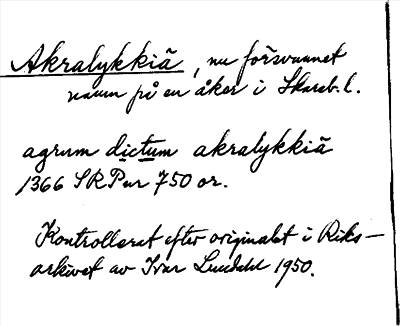 Akralykkiä, nu försvunnet
namn på en åker i Skarab. l.
agrum dictum akralykkiä
1366 SRP nr 750 or.
Kontrollerat efter originalet i Riks-
arkivet av Ivar Lundahl 1950.